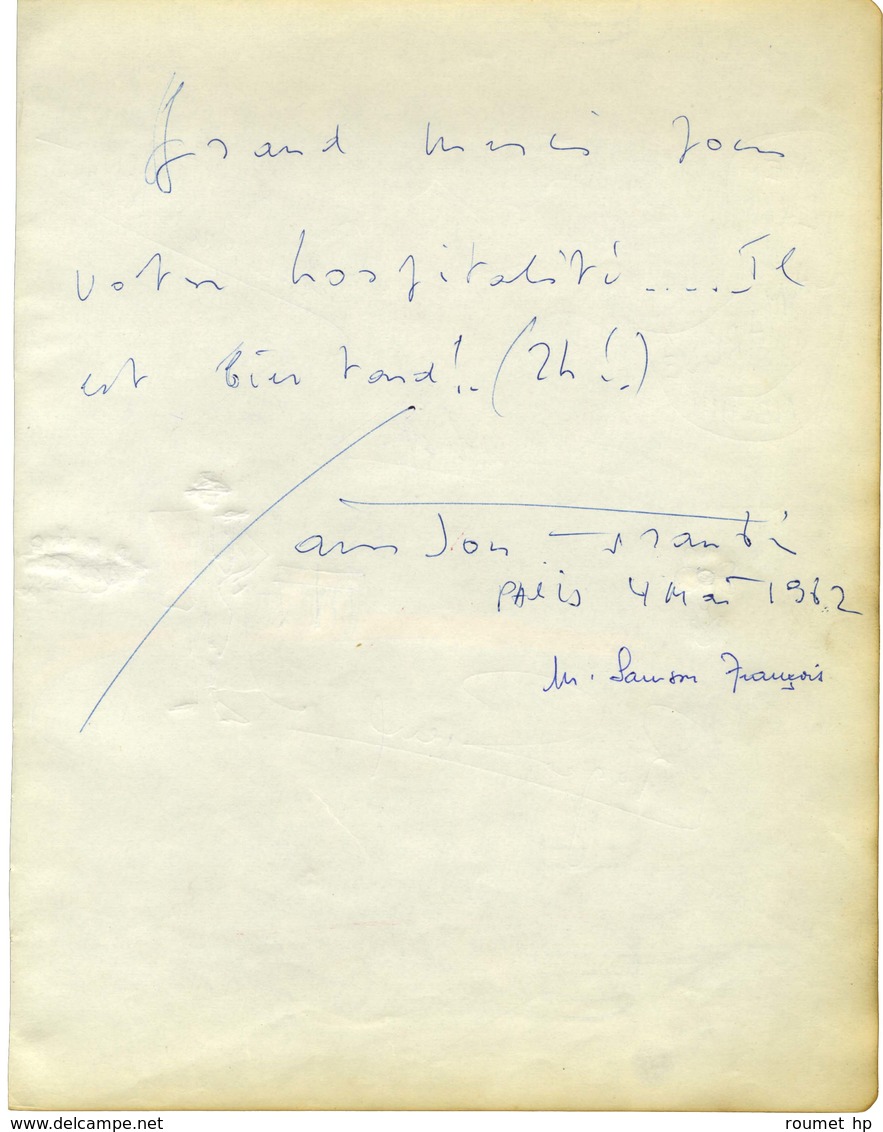 Grand merci pour
votre hospitalité..... Il
est bien tard!.. (2h!..)
Paris 4 Mai 1962
M. Samson François
www.delcampe.net
roumet hp